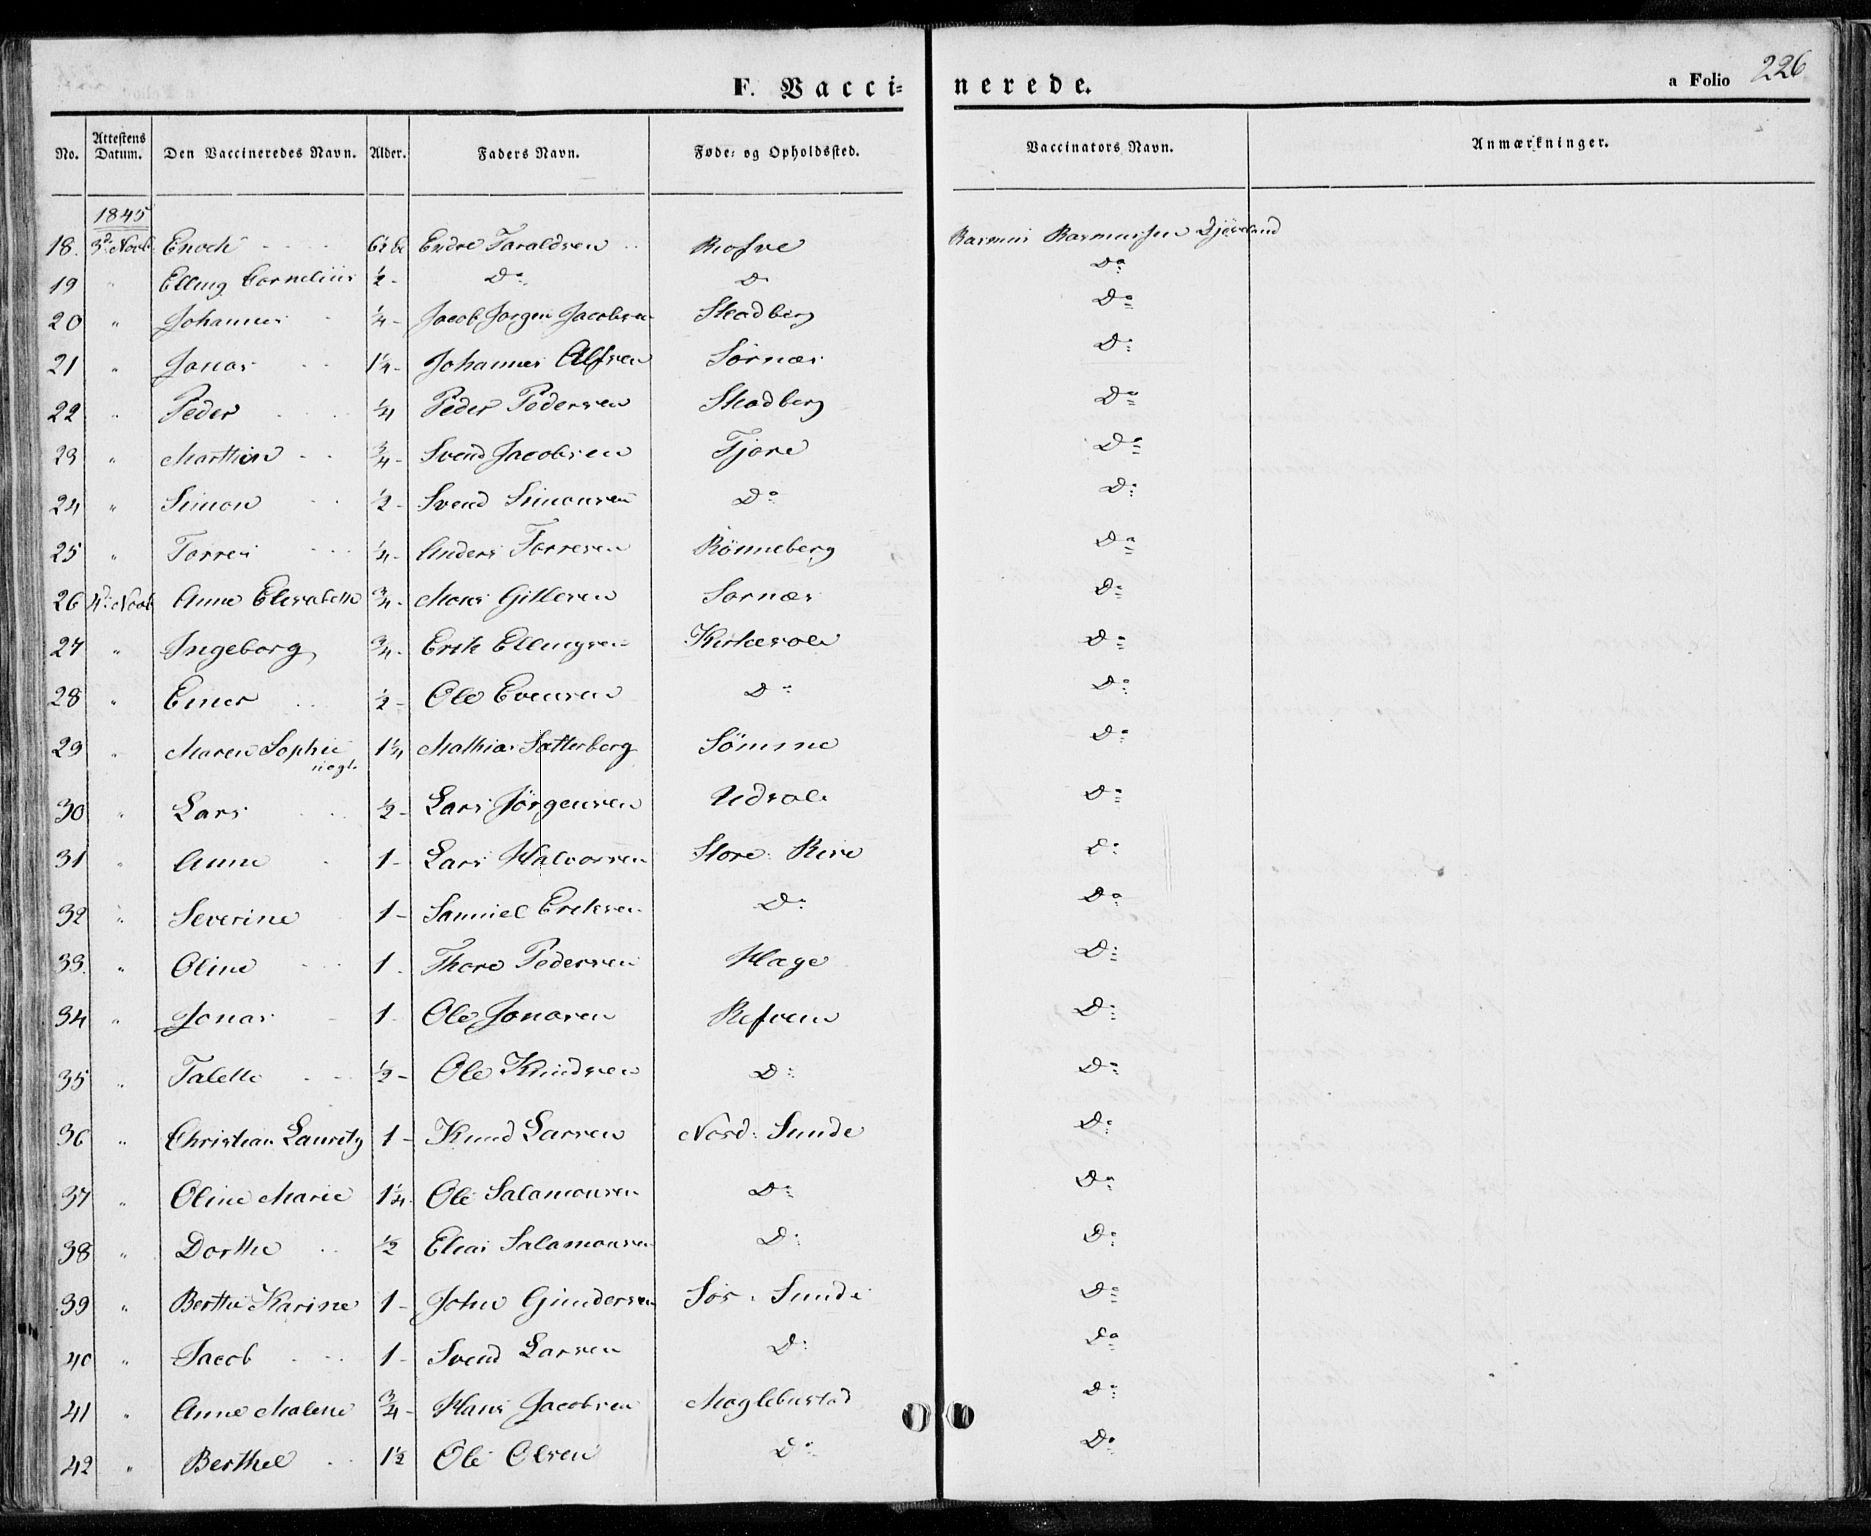 F. Vacci- nerede. a Folio 226
No. Attestens Datum. Den Vaccineredes Navn. Alder. Faders Navn. Føde- og Opholdssted. Vaccinators Navn. Anmærkninger.
1845
18. 3d Novb Enoch Endre Taraldsen Rasmus Rasmussen
19 " Elling Cornelius ½ - Do Do Do
20 " Johannes ¼ - Jacob Jørgen Jacobsen Skadberg Do
21 " Jonas 1¼ - Johannes Alfsen Sørnæs Do
22 " Peder ¼ Peder Pedersen Skadberg Do
23 " Marthin ¾ - Svend Jacobsen Tjore Do
24 " Simon ½ - Svend Simonsen Do Do
25 " Torres ¼ - Anders Torresen Rönneberg Do
26 4d Novb Anne Elisabeth ¾ - Mons Gittesen Sørnæs Do
27 " Ingeborg ¾ - Erik Ellingsen Kirkesole Do
28 " Einer ½ - Ole Evensen Do Do
29 " Maren Sophie 1¼ Mathias Sætterberg Sömme Do
uægt.
30 " Lars ½ - Lars Jörgensen Udsole Do
31 " Anne 1 - Lars Halvorsen Store Risa Do
32 " Severine 1 - Samuel Eriksen Do Do
33. " Oline 1. Thore Pedersen Hage Do
34 " Jonas 1 Ole Jonasen Refvem Do
35 " Talette ½ - Ole Knudsen Do Do
36 " Christian Lauritz 1 - Knud Larsen Nord: Sunde Do
37 " Oline Marie 1¼ Ole Salamonsen Do Do
38 " Dorthe ½ Elias Salamonsen Do Do
39 " Berthe Karine 1 - John Gundersen Sør: Sunde Do
40 " Jacob 1 - Svend Larsen Do Do
41 " Anne Malene ¾ - Hans Jacobsen Maglebustad Do
42 " Berthel 1½ Ole Olsen Do Do